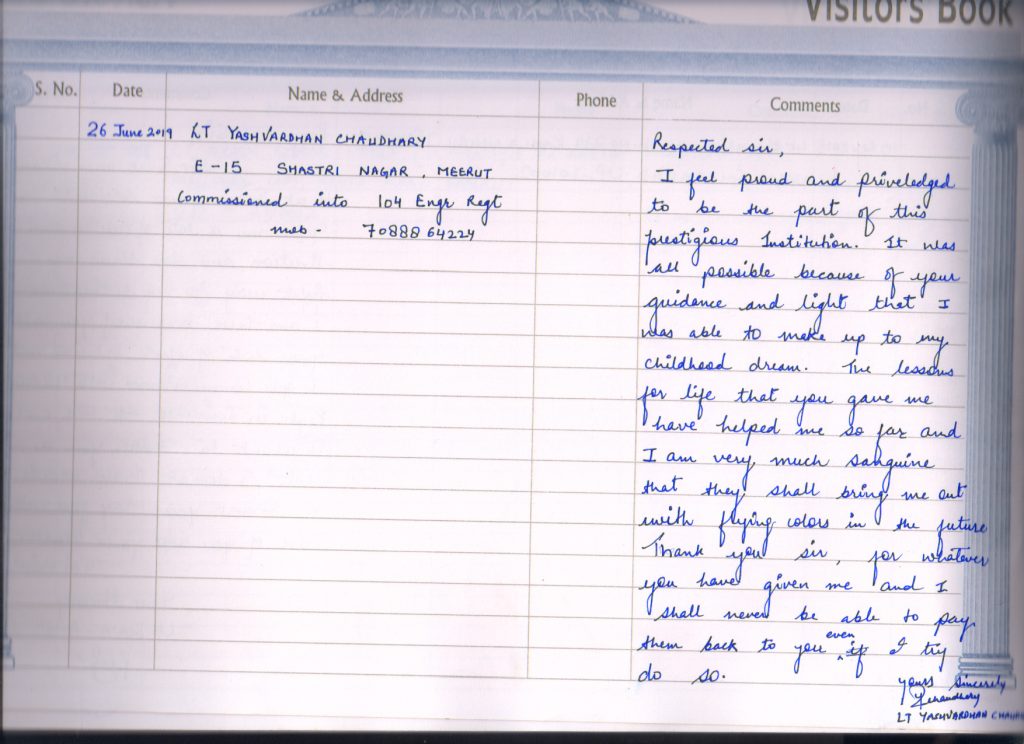 Visitors Book
S. No.
Date
Name & Address
Phone
Comments
26 June 2019
LT YASHVARDHAN CHAUDHARY
E-15 SHASTRI NAGAR, MEERUT
Commissioned into 104 Engr Regt
mob - 70888 64224
Respected sir,
I feel proud and priveledged
to be the part of this
prestigious Institution. It was
all possible because of your
guidance and light that I
was able to make up to my
childhood dream. The lessons
for life that you gave me
have helped me so far and
I am very much sanguine
that they shall bring me out
with flying colors in the future
Thank you sir, for whatever
you have given me and I
shall never be able to pay
them back to you even if I try
do so.
yours sincerely
YChaudhary
LT YASHVARDHAN CHAUDH